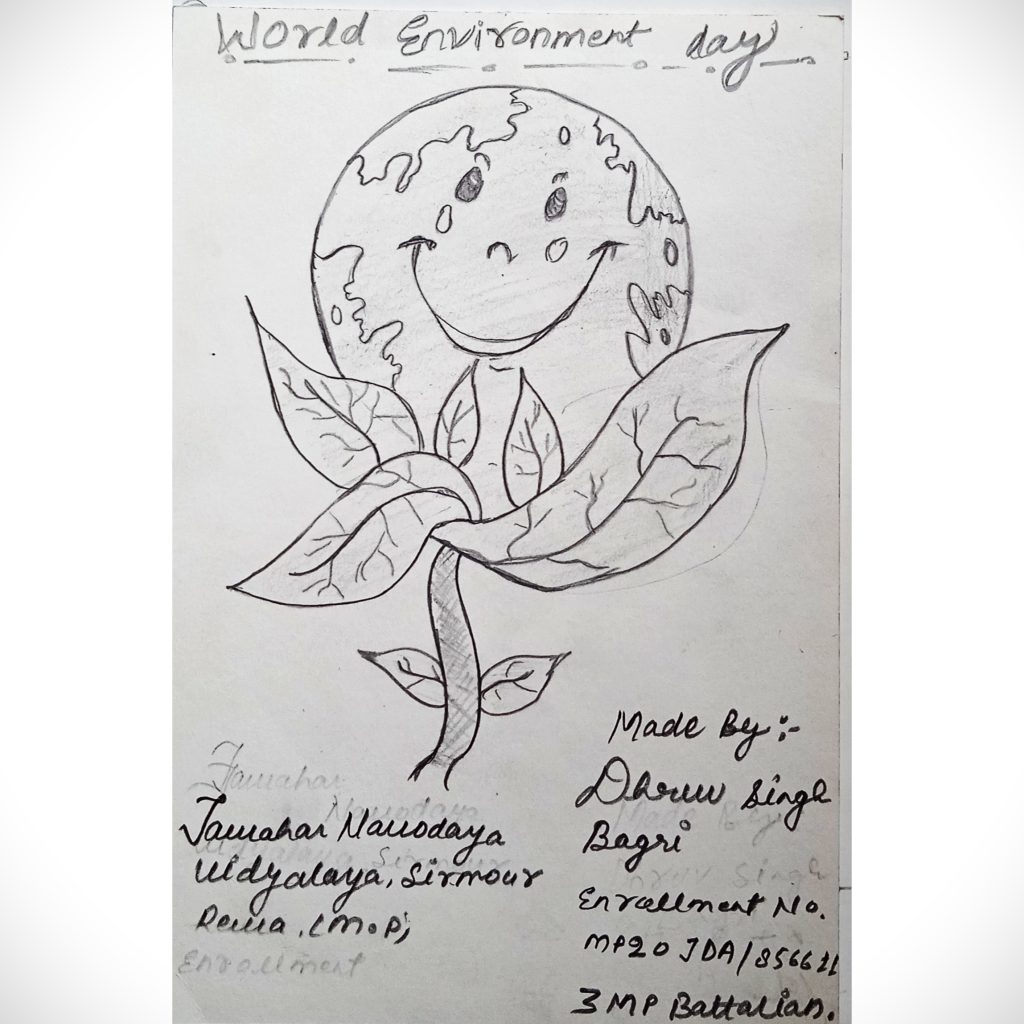 World Environment day
Jawahar Navodaya
Vidyalaya, Sirmour
Rewa, (M.P)
Enrollment
Made By :-
Dhruv Singh
Bagri
Enrollment No.
MP20 JDA/856621
3 MP Battalian.